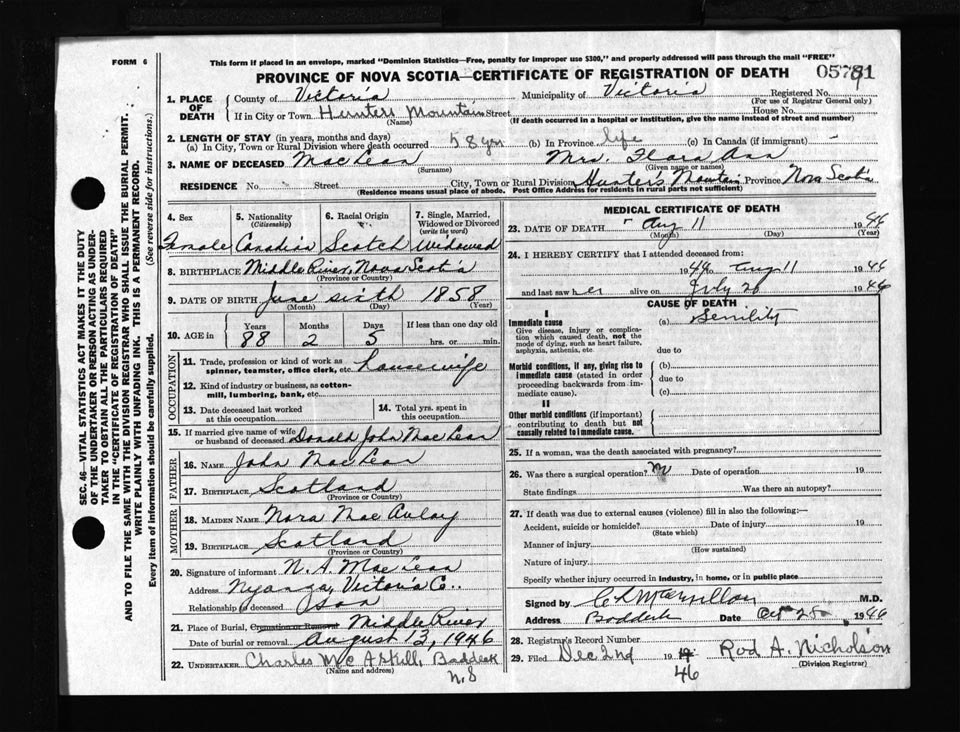 FORM 6
This form if placed in an envelope, marked "Dominion Statistics—Free, penalty for improper use $300," and properly addressed will pass through the mail "FREE"
PROVINCE OF NOVA SCOTIA—CERTIFICATE OF REGISTRATION OF DEATH
05781
SEC. 46—VITAL STATISTICS ACT MAKES IT THE DUTY
OF THE UNDERTAKER OR PERSON ACTING AS UNDER-
TAKER TO OBTAIN ALL THE PARTICULARS REQUIRED
IN THE "CERTIFICATE OF REGISTRATION OF DEATH"
AND TO FILE THE SAME WITH THE DIVISION REGISTRAR WHO SHALL ISSUE THE BURIAL PERMIT.
WRITE PLAINLY WITH UNFADING INK. THIS IS A PERMANENT RECORD.
Every item of information should be carefully supplied. (See reverse side for instructions.)
1. PLACE OF DEATH
County of Victoria Municipality of Victoria Registered No.
(For use of Registrar General only)
If in City or Town Hunters Mountain Street House No.
(Name) (If death occurred in a hospital or institution, give the name instead of street and number)
2. LENGTH OF STAY (in years, months and days)
(a) In City, Town or Rural Division where death occurred 58 yrs (b) In Province life (c) In Canada (if immigrant)
3. NAME OF DECEASED MacLean Mrs. Flora Ann
(Surname) (Given name or names)
RESIDENCE No. Street City, Town or Rural Division Hunters Mountain Province Nova Scotia
(Residence means usual place of abode. Post Office Address for residents in rural parts not sufficient)
4. Sex
Female
5. Nationality
(Citizenship)
Canadian
6. Racial Origin
Scotch
7. Single, Married,
Widowed or Divorced
(write the word)
Widowed
8. BIRTHPLACE Middle River, Nova Scotia
(Province or Country)
9. DATE OF BIRTH June sixth 1858
(Month) (Day) (Year)
10. AGE in
Years Months Days If less than one day old
88 2 5 hrs. or min.
OCCUPATION
11. Trade, profession or kind of work as
spinner, teamster, office clerk, etc. housewife
12. Kind of industry or business, as cotton-
mill, lumbering, bank, etc.
13. Date deceased last worked
at this occupation
14. Total yrs. spent in
this occupation
15. If married give name of wife
or husband of deceased Donald John MacLean
FATHER
16. NAME John MacLean
17. BIRTHPLACE Scotland
(Province or Country)
MOTHER
18. MAIDEN NAME Nora MacAulay
19. BIRTHPLACE Scotland
(Province or Country)
20. Signature of informant N. A. MacLean
Address Nyanza, Victoria Co.
Relationship to deceased Son
21. Place of Burial, Cremation or Removal Middle River
Date of burial or removal August 13, 1946
22. UNDERTAKER Charles McAskill, Baddeck
(Name and address) N.S
MEDICAL CERTIFICATE OF DEATH
23. DATE OF DEATH Aug 11 1946
(Month) (Day) (Year)
24. I HEREBY CERTIFY that I attended deceased from:
1944 to Aug 11 1946
and last saw her alive on July 26 1946
CAUSE OF DEATH
I
Immediate cause (a) Senility
Give disease, injury or complica-
tion which caused death, not the
mode of dying, such as heart failure,
asphyxia, asthenia, etc. due to
Morbid conditions, if any, giving rise to
immediate cause (stated in order
proceeding backwards from im-
mediate cause).
(b)
due to
(c)
II
Other morbid conditions (if important)
contributing to death but not
causally related to immediate cause.
25. If a woman, was the death associated with pregnancy?
26. Was there a surgical operation? No Date of operation 19
State findings Was there an autopsy?
27. If death was due to external causes (violence) fill in also the following:—
Accident, suicide or homicide? Date of injury 19
(State which)
Manner of injury
(How sustained)
Nature of injury
Specify whether injury occurred in industry, in home, or in public place
Signed by C L McMillan M.D.
Address Baddeck Date Oct 28 1946
28. Registrar's Record Number
29. Filed Dec 2nd 19 46 Rod A. Nicholson
(Division Registrar)